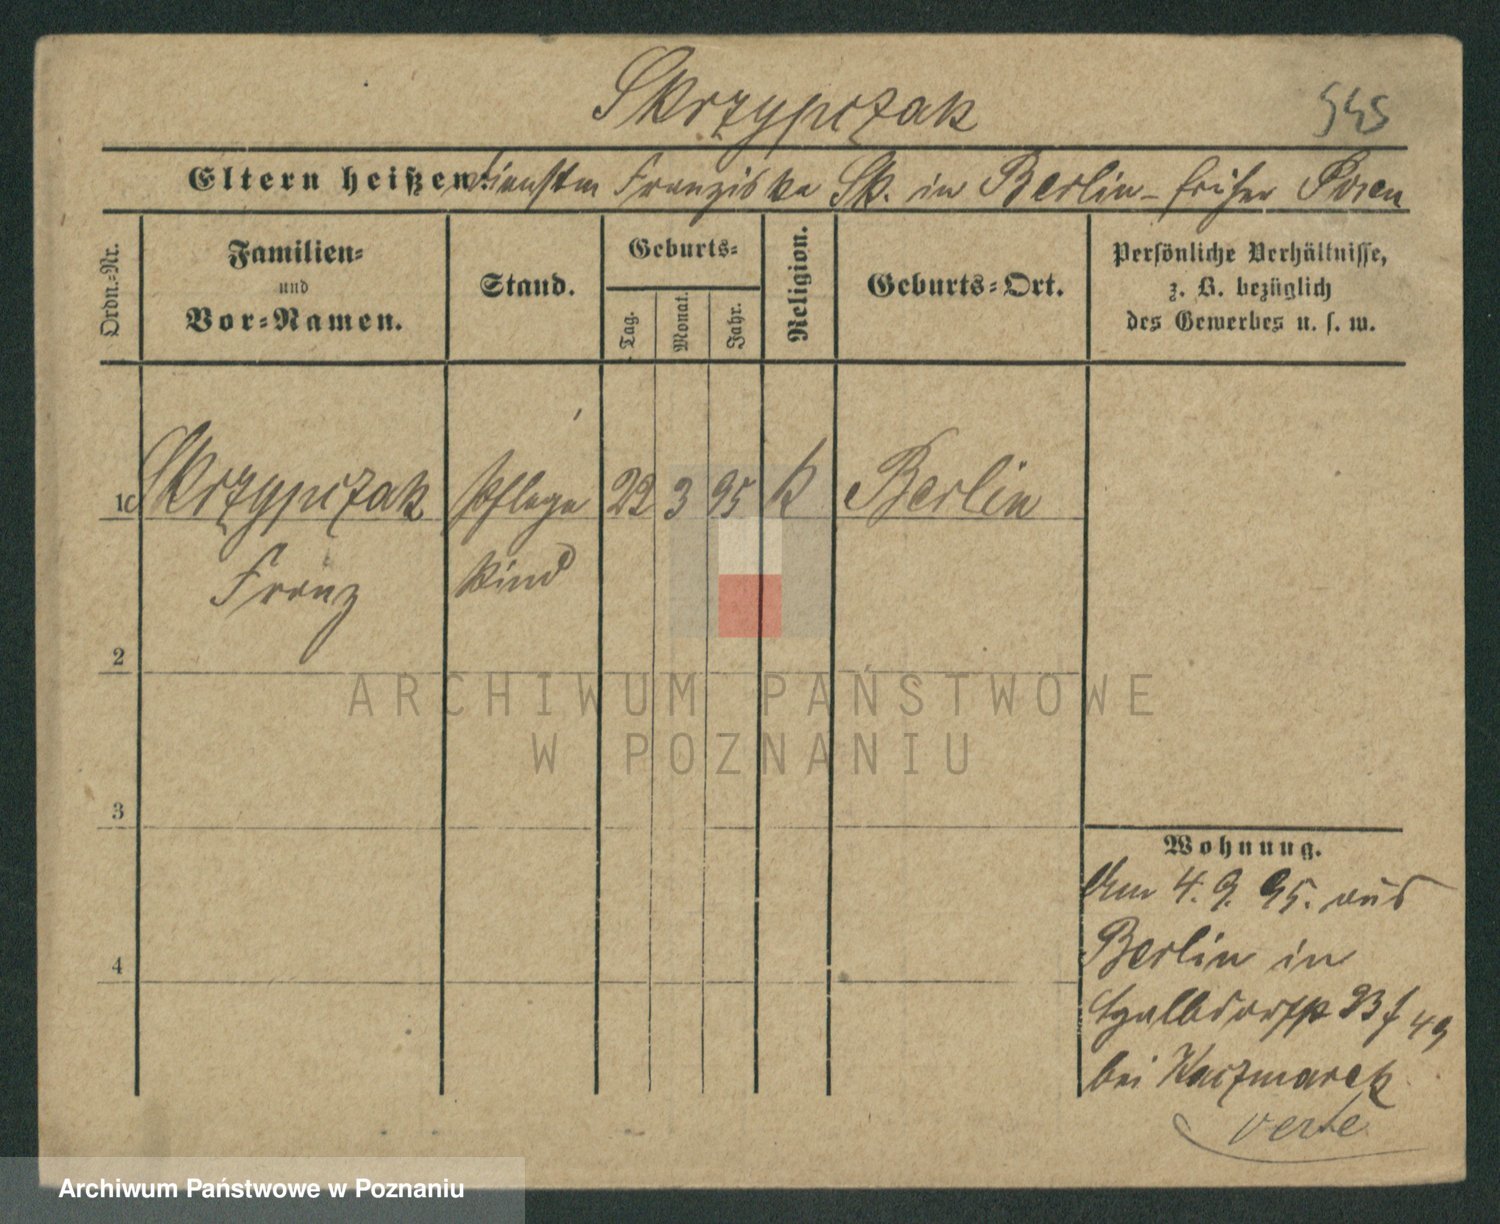 Skrzypczak
545
Eltern heißen: Dienstm Franziska Sk. in Berlin – früher Posen
Ordn.-Nr.
Familien-
und
Vor-Namen.
Stand.
Geburts-
Tag.
Monat.
Jahr.
Religion.
Geburts-Ort.
Persönliche Verhältnisse,
z. B. bezüglich
des Gewerbes u. s. w.
1 Skrzypczak Pflege 22 3 95 k Berlin
Franz kind
2
3
4
Wohnung.
Am 4. 9. 95. aus
Berlin in
bei Kaczmarek
verte
ARCHIWUM PAŃSTWOWE
W POZNANIU
Archiwum Państwowe w Poznaniu